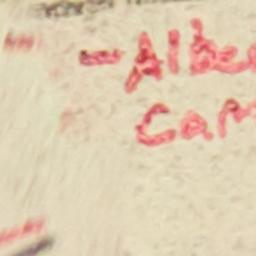 - Albe
Cam